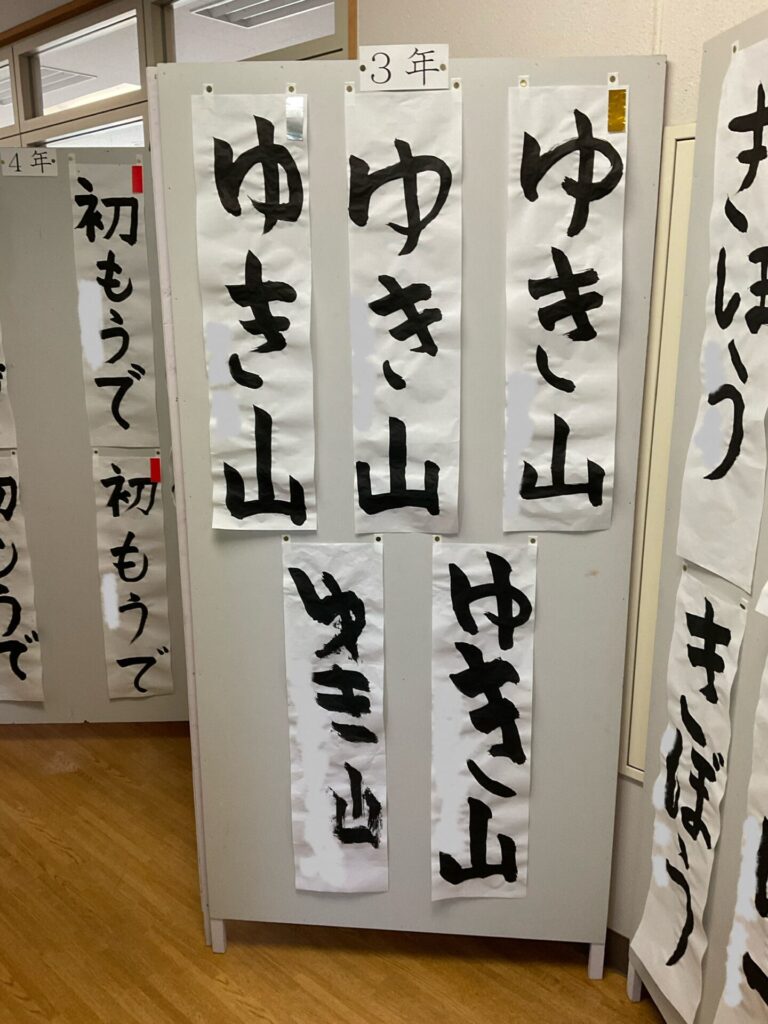 3年
ゆき山
ゆき山
ゆき山
ゆき山
ゆき山
4年
初もうで
初もうで
きぼう
きぼう